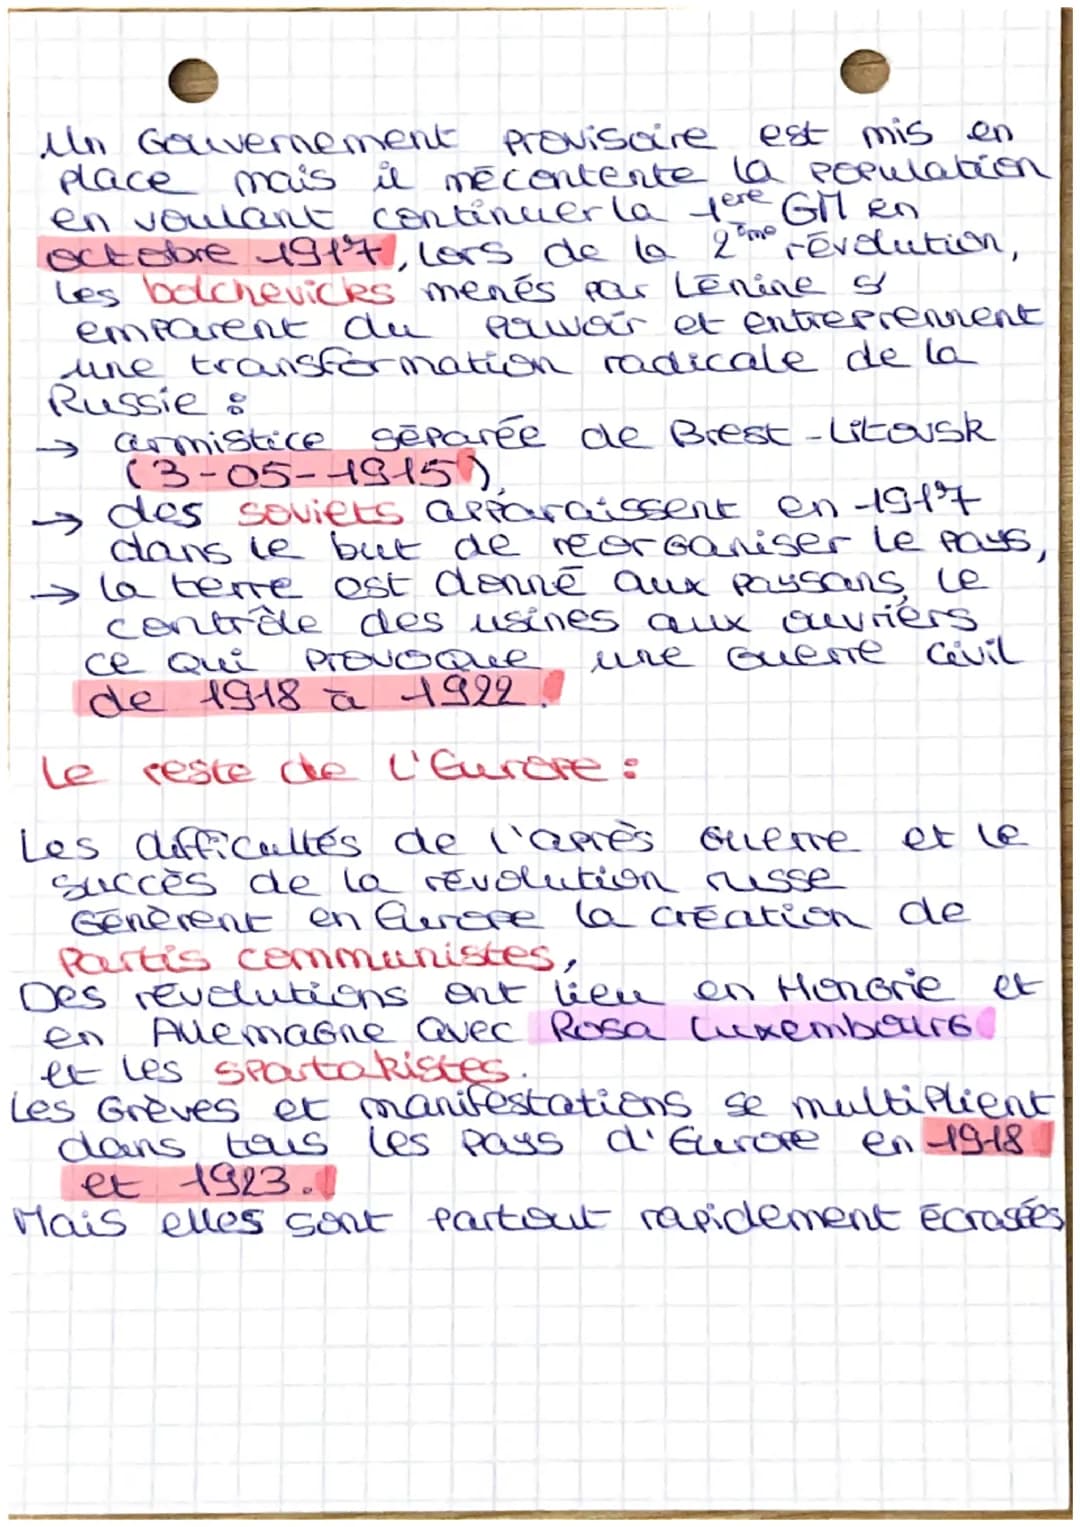 Un Gouvernement provisoire est mis en
place mais il mécontente la population
en voulant continuer la 1ère GM en
octobre 1917, lors de la 2ème révolution,
les bolchevicks menés par Lénine s'
emparent du pouvoir et entreprennent
une transformation radicale de la
Russie :
→ armistice séparée de Brest-Litovsk
(3-05-1915),
→ des soviets apparaissent en 1917
dans le but de réorganiser le pays,
→ la terre est donné aux paysans, le
contrôle des usines aux ouvriers
ce qui provoque une guerre civil
de 1918 à 1922.
Le reste de l'Europe :
Les difficultés de l'après guerre et le
succès de la révolution russe
Génèrent en Europe la création de
Partis communistes,
Des révolutions ont lieu en Hongrie et
en Allemagne avec Rosa Luxembourg
et les spartakistes.
Les Grèves et manifestations se multiplient
dans tous les pays d'Europe en 1918
et 1923.
Mais elles sont partout rapidement écrasées